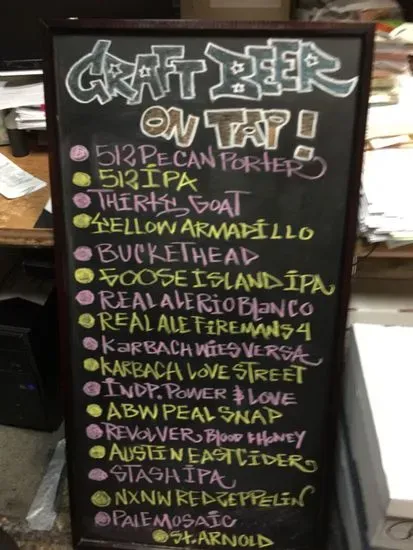 CRAFT BEER
ON TAP!
512 PECAN PORTER
512 IPA
THIRTS GOAT
YELLOW ARMADILLO
BUCKETHEAD
GOOSE ISLAND IPA
REAL ALE RIO BLANCO
REAL ALE FIREMANS 4
KARBACH WIESVERSA
KARBACH LOVE STREET
INDP. POWER & LOVE
ABW PEAL SNAP
REVOLVER BLOOD & HONEY
AUSTIN EAST CIDER
STASH IPA
NXNW RED ZEPPELIN
PALE MOSAIC
ST. ARNOLD